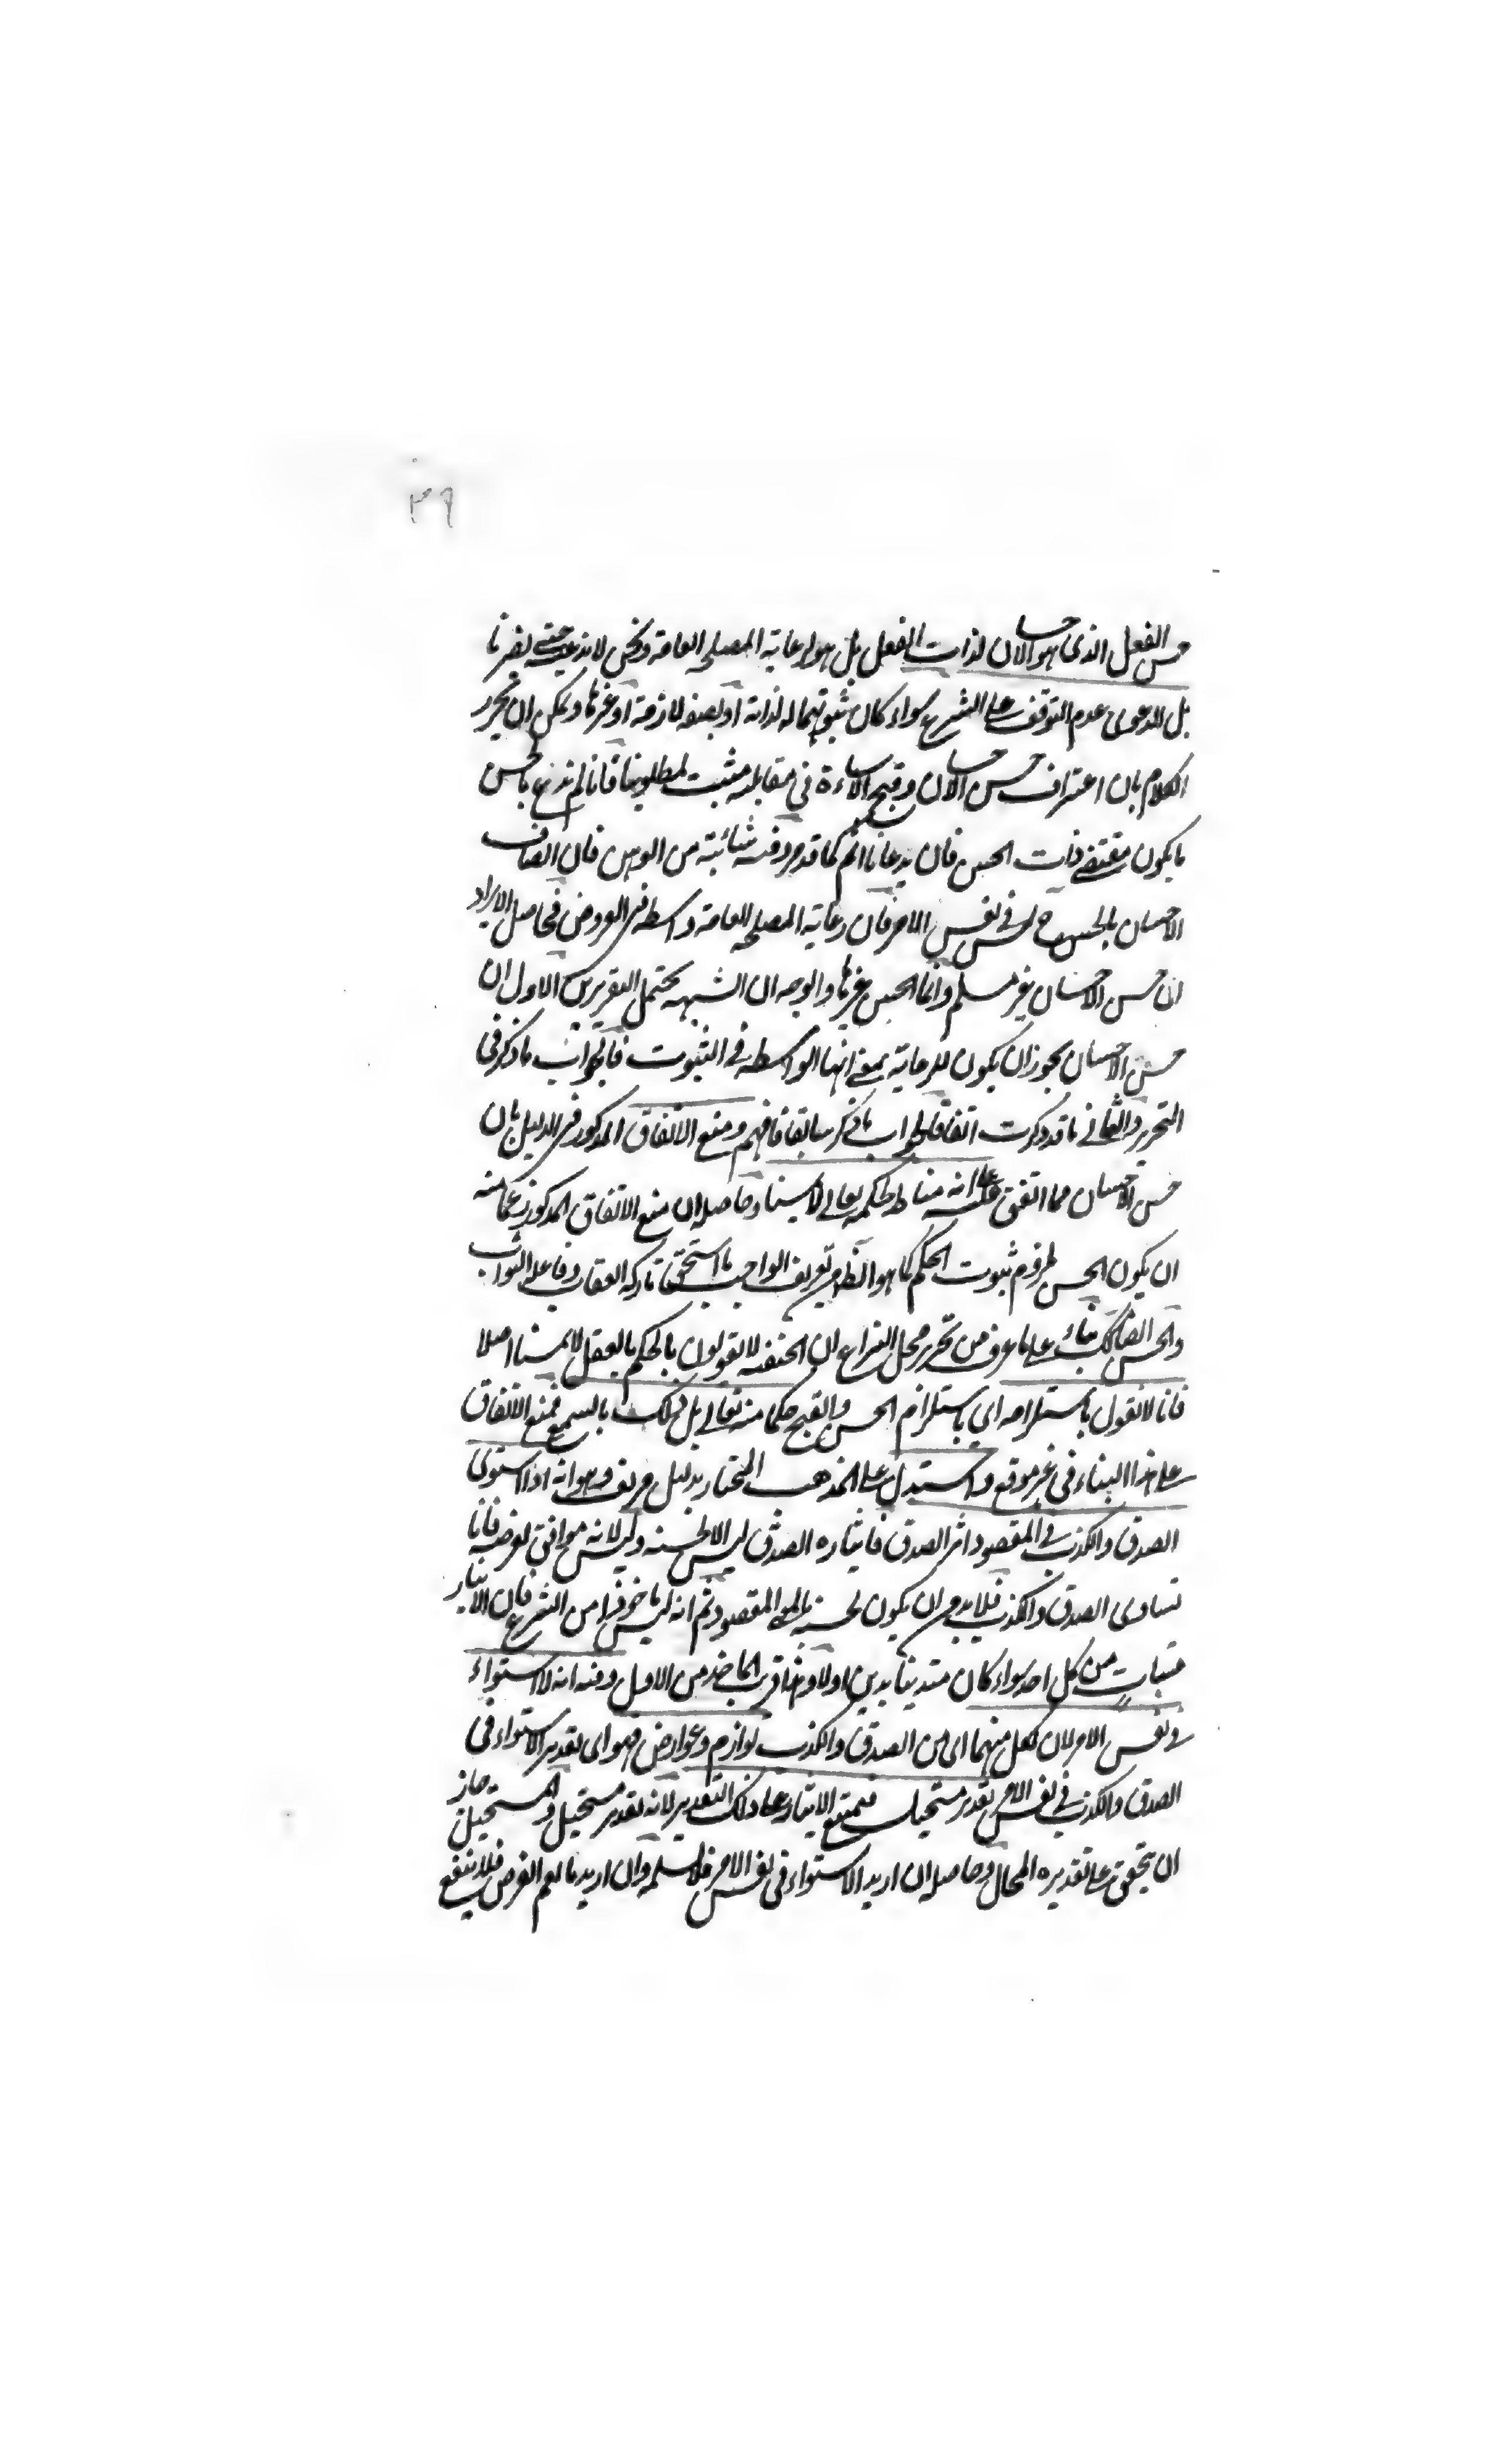 ٣٩
حسن الفعل الذى هو الاحسان لذات الفعل بل هو لرعاية المصلحة العامة ونحن لا ندعيه حتى يضرنا
بل الدعوى عدم التوقف على الشرع سواء كان ثبوتهما له لذاته او بصفة لازمة او غيرها ويمكن ان يحرر
الكلام بان اعتراف حسن الاحسان وقبح الاساءة فى مقابلة مثبت لمطلوبنا فانا لم ندع بالحسن
ما يكون مقتضى ذات الحسن فان مدعانا اعم كما قدمر وفيه شائبة من الوهن فان اتصاف
الاحسان بالحسن ح ليس فى نفس الامر فان رعاية المصلحة العامة واسطة فى العروض فحاصل الايراد
ان حسن الاحسان غير مسلم وانما الحسن غيرها والوجه ان الشبهة يحتمل التقريرين الاول ان
حسن الاحسان يجوز ان يكون للرعاية بمعنى انها الواسطة فى الثبوت فالجواب ما ذكر فى
التحرير والثانى ما قد ذكرت اتفاقا فالجواب ما ذكر سابقا فافهم ومنع الاتفاق المذكور فى الدليل بان
حسن الاحسان مما اتفق عليه انه مناط لحكمه تعالى لا يمسنا وحاصله ان منع الاتفاق المذكور زعما منه
ان يكون الحسن ملزوم ثبوت الحكم كما هو الظاهر تعريف الواجب ما استحق تاركه العقاب وفاعله الثواب
والحسن ايضا كك بناء على ما عرف من تحرير محل النزاع ان الحنفية لا يقولون بالحكم بالعقل لا يمسنا اصلا
فانا لا نقول باستلزامه اي باستلزام الحسن والقبح حكما منه تعالى بل ذلك بالسمع فمنع الاتفاق
على هذا البناء فى غير موقع واستدل على المذهب المختار بدليل مزيف وهو انه اذا استوى
الصدق والكذب فى المقصود اثر الصدق فايثاره الصدق ليس الا لحسنه وليس لانه موافق لغرضه فانا
تساوى الصدق والكذب فلا بد من ان يكون لحسنه بالمعنى المقصود ثم انه ليس ماخوذا من الشرع فان الايثار
متبات من كل احد سواء كان متدينا بدين اولا وهذا قريب الماخذ من الاول وفيه انه لا استواء
فى نفس الامر لان لكل منهما اى من الصدق والكذب لوازم وعوارض فهو اى تقدير الاستواء فى
الصدق والكذب فى نفس الامر تقدير مستحيل فيمتنع الايثار على ذلك التقدير لانه تقدير مستحيل والمستحيل جاز
ان يتحقق على تقديره المحال وحاصله ان اريد الاستواء فى نفس الامر فلا نسلمه وان اريد ما يعم الفرض فلا ينفع